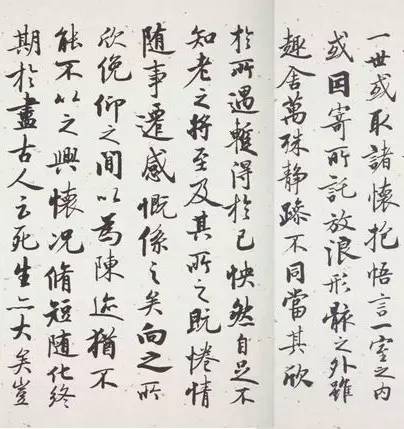 一世或取諸懷抱悟言一室之内
或因寄所託放浪形骸之外雖
趣舍萬殊静躁不同當其欣
於所遇暫得於己怏然自足不
知老之將至及其所之既惓情
随事遷感慨係之矣向之所
欣俛仰之間以為陳迹猶不
能不以之興懷况脩短随化終
期於盡古人云死生亦大矣豈